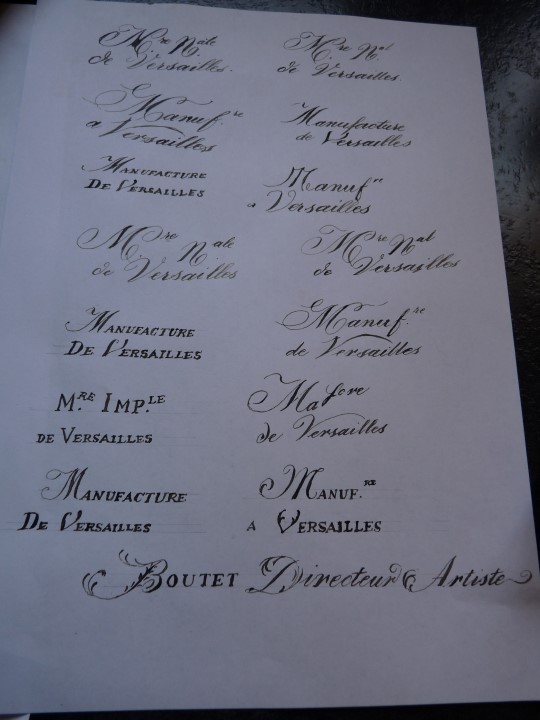 Mre Nale
de Versailles.
Mre Nal
de Versailles.
Manuf.re
a Versailles
Manufacture
de Versailles
MANUFACTURE
DE VERSAILLES
Manufre
a Versailles
Mre Nale
de Versailles
Mre Nal
de Versailles
MANUFACTURE
DE VERSAILLES
Manuf.re
de Versailles
M.RE IMP.LE
DE VERSAILLES
de Versailles
MANUFACTURE
DE VERSAILLES
MANUF.RE
A VERSAILLES
BOUTET Directeur Artiste